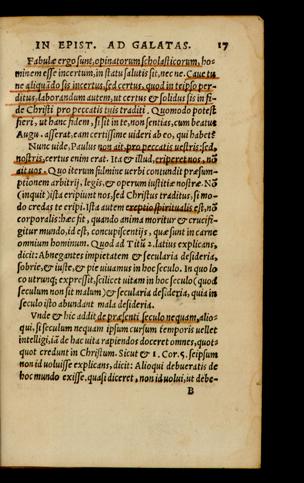 IN EPIST. AD GALATAS. 17
Fabulæ ergo sunt, opinatorum scholasticorum, ho-
minem esse incertum, in statu salutis sit, nec ne. Caue tu
ne aliquãdo sis incertus, sed certus, quod in teipso per-
ditus, laborandum autem, ut certus & solidus sis in fi-
de Christi pro peccatis tuis traditi. Quomodo potest
fieri, ut hanc fidem, si sit in te, non sentias, cum beatus
Augu. asserat, eam certissime uideri ab eo, qui habet?
Nunc uide, Paulus non ait, pro peccatis uestris: sed,
nostris, certus enim erat. Ita & illud, eriperet nos, nõ
ait uos. Quo iterum fulmine uerbi contundit præsum-
ptionem arbitrij, legis, & operum iustitiæ nostræ. Nõ
(inquit) ista eripiunt nos, sed Christus traditus, si mo-
do credas te eripi. Ista autem ereptio spiritualis est, nõ
corporalis: hæc fit, quando anima moritur & crucifi-
gitur mundo, id est, concupiscentijs, quæ sunt in carne
omnium hominum. Quod ad Titũ 2. latius explicans,
dicit: Abnegantes impietatem & secularia desideria,
sobrie, & iuste, & pie uiuamus in hoc seculo. In quo lo
co utrunq; expressit, scilicet uitam in hoc seculo (quod
seculum non sit malum) & secularia desideria, quia in
seculo isto abundant mala desideria.
Vnde & hic addit de præsenti seculo nequam, alio-
qui, si seculum nequam ipsum cursum temporis uellet
intelligi, iã de hac uita rapiendos doceret omnes, quot-
quot credunt in Christum. Sicut & 1. Cor. 5. seipsum
non id uoluisse explicans, dicit: Alioqui debueratis de
hoc mundo exisse. quasi diceret, non id uolui, ut debe-
B